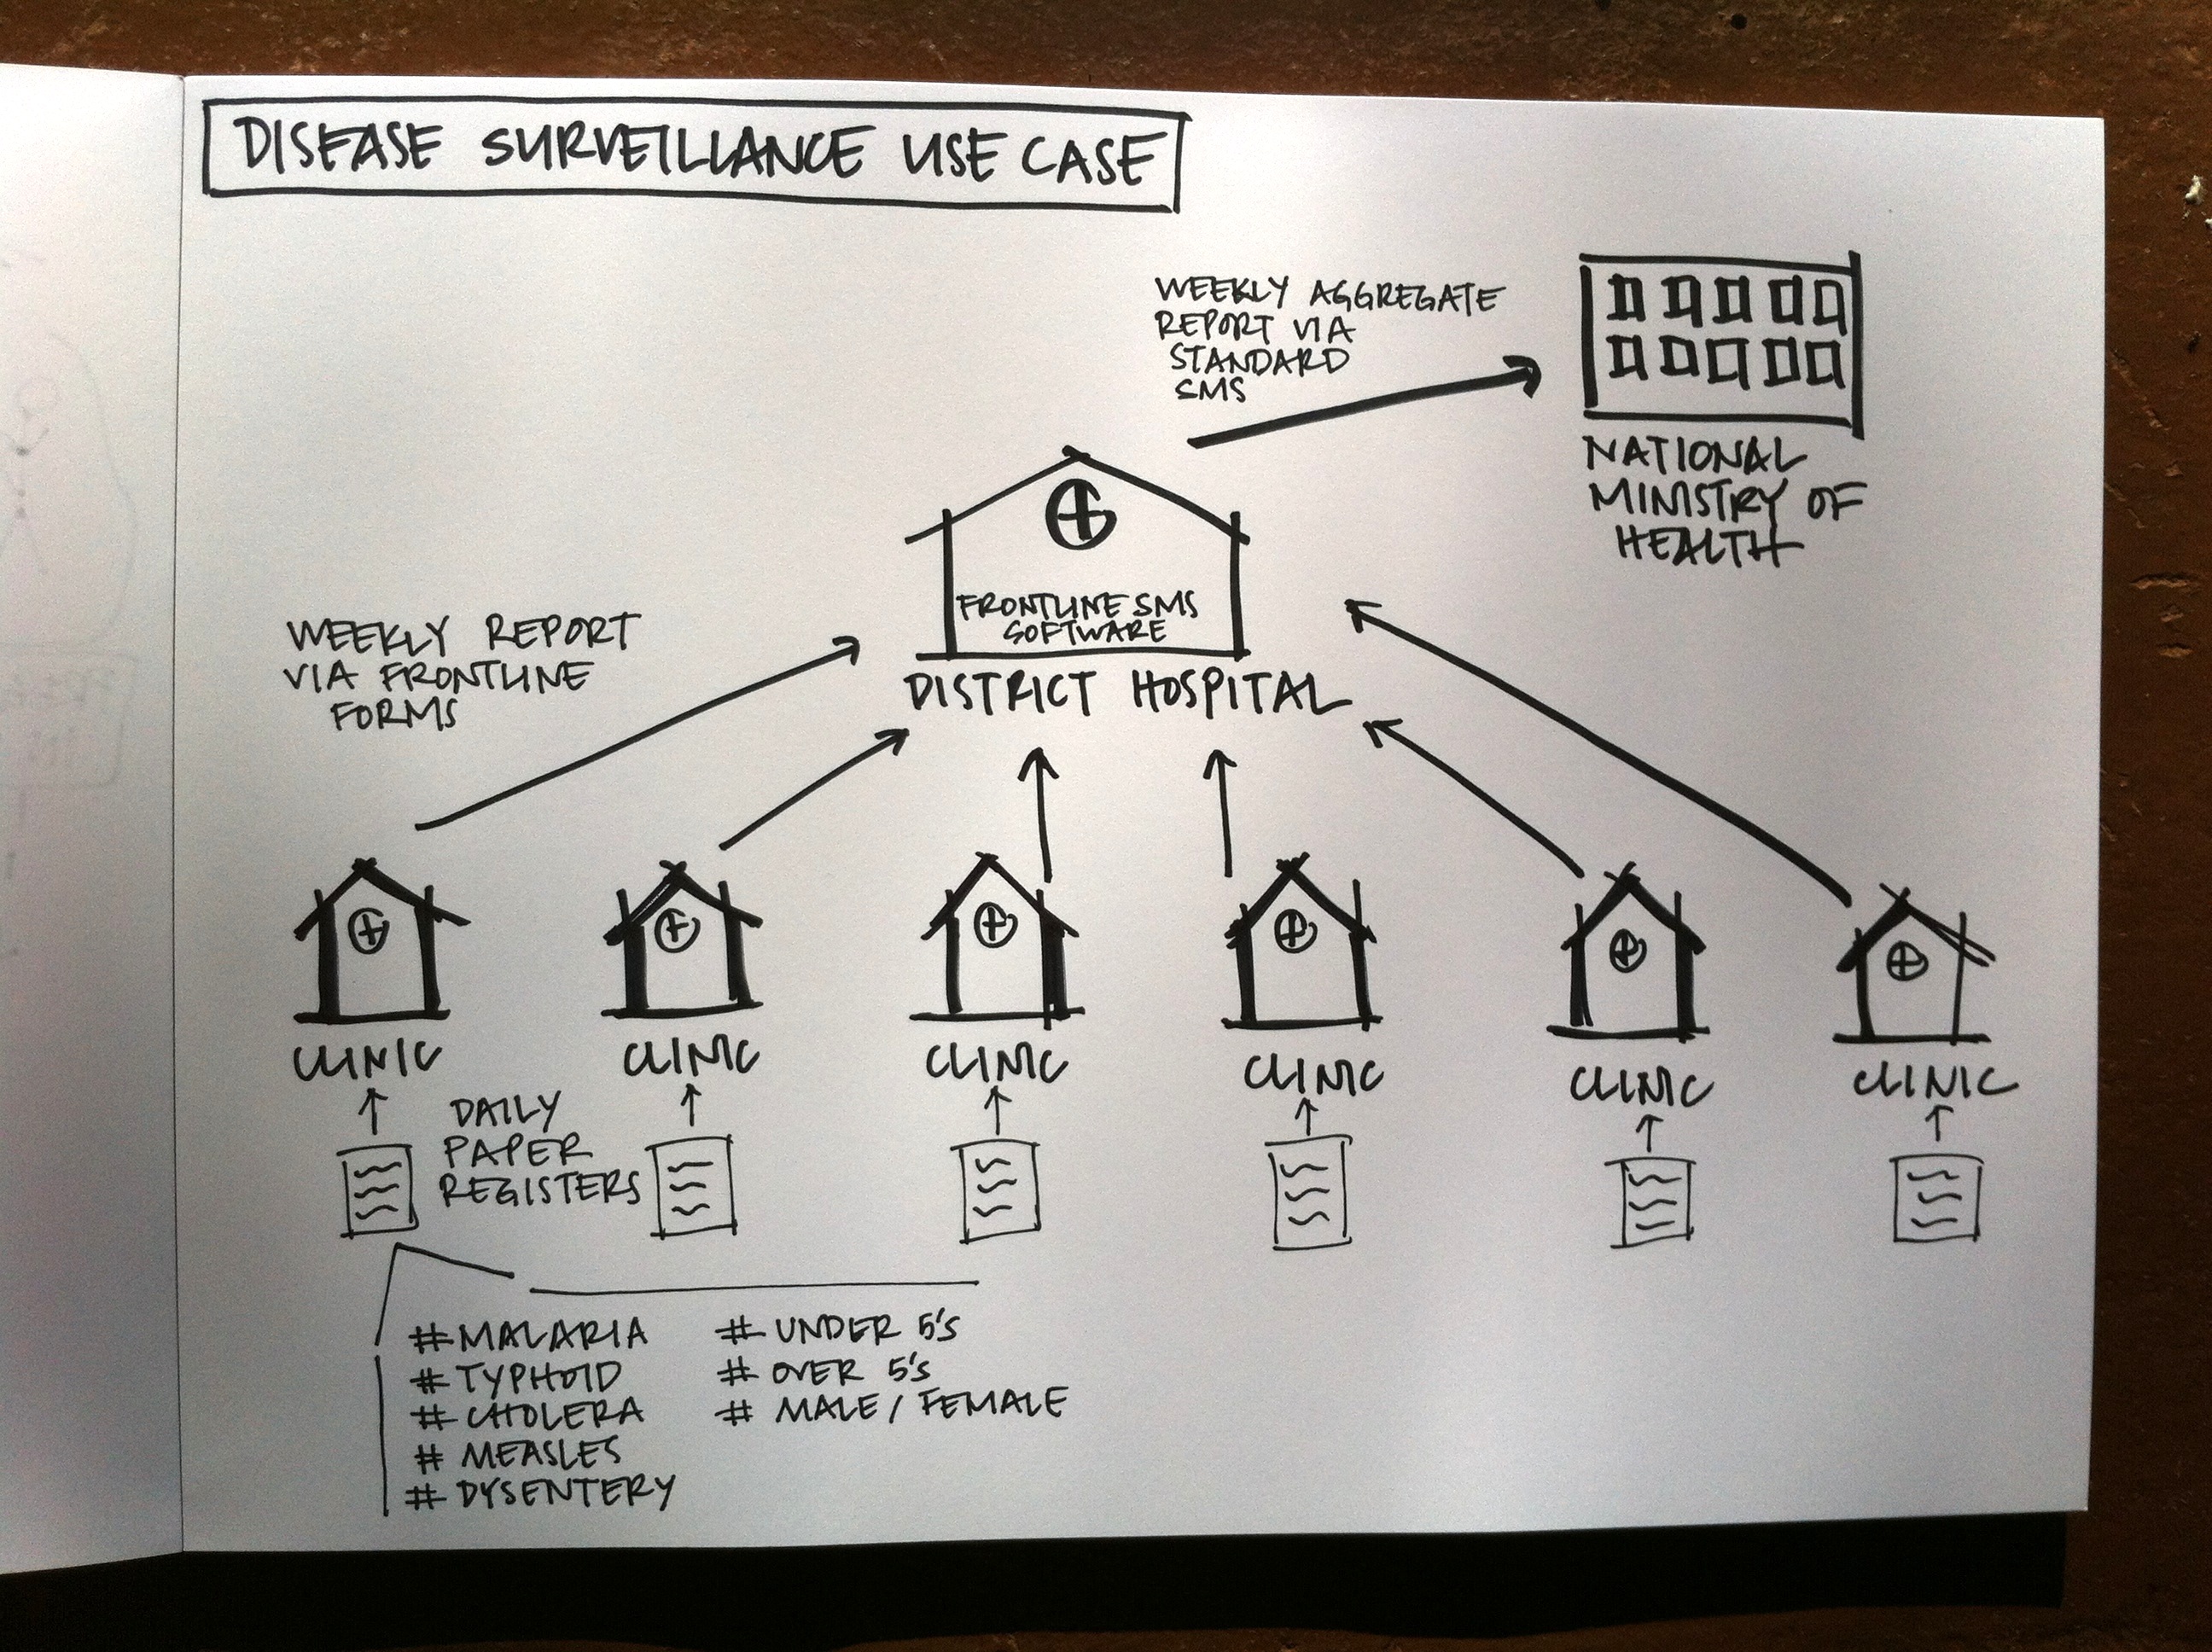 DISEASE SURVEILLANCE USE CASE
WEEKLY AGGREGATE
REPORT VIA
STANDARD
SMS
NATIONAL
MINISTRY OF
HEALTH
FRONTLINE SMS
SOFTWARE
DISTRICT HOSPITAL
WEEKLY REPORT
VIA FRONTLINE
FORMS
CLINIC
CLINIC
CLINIC
CLINIC
CLINIC
CLINIC
DAILY
PAPER
REGISTERS
# MALARIA
# TYPHOID
# CHOLERA
# MEASLES
# DYSENTERY
# UNDER 5'S
# OVER 5'S
# MALE / FEMALE